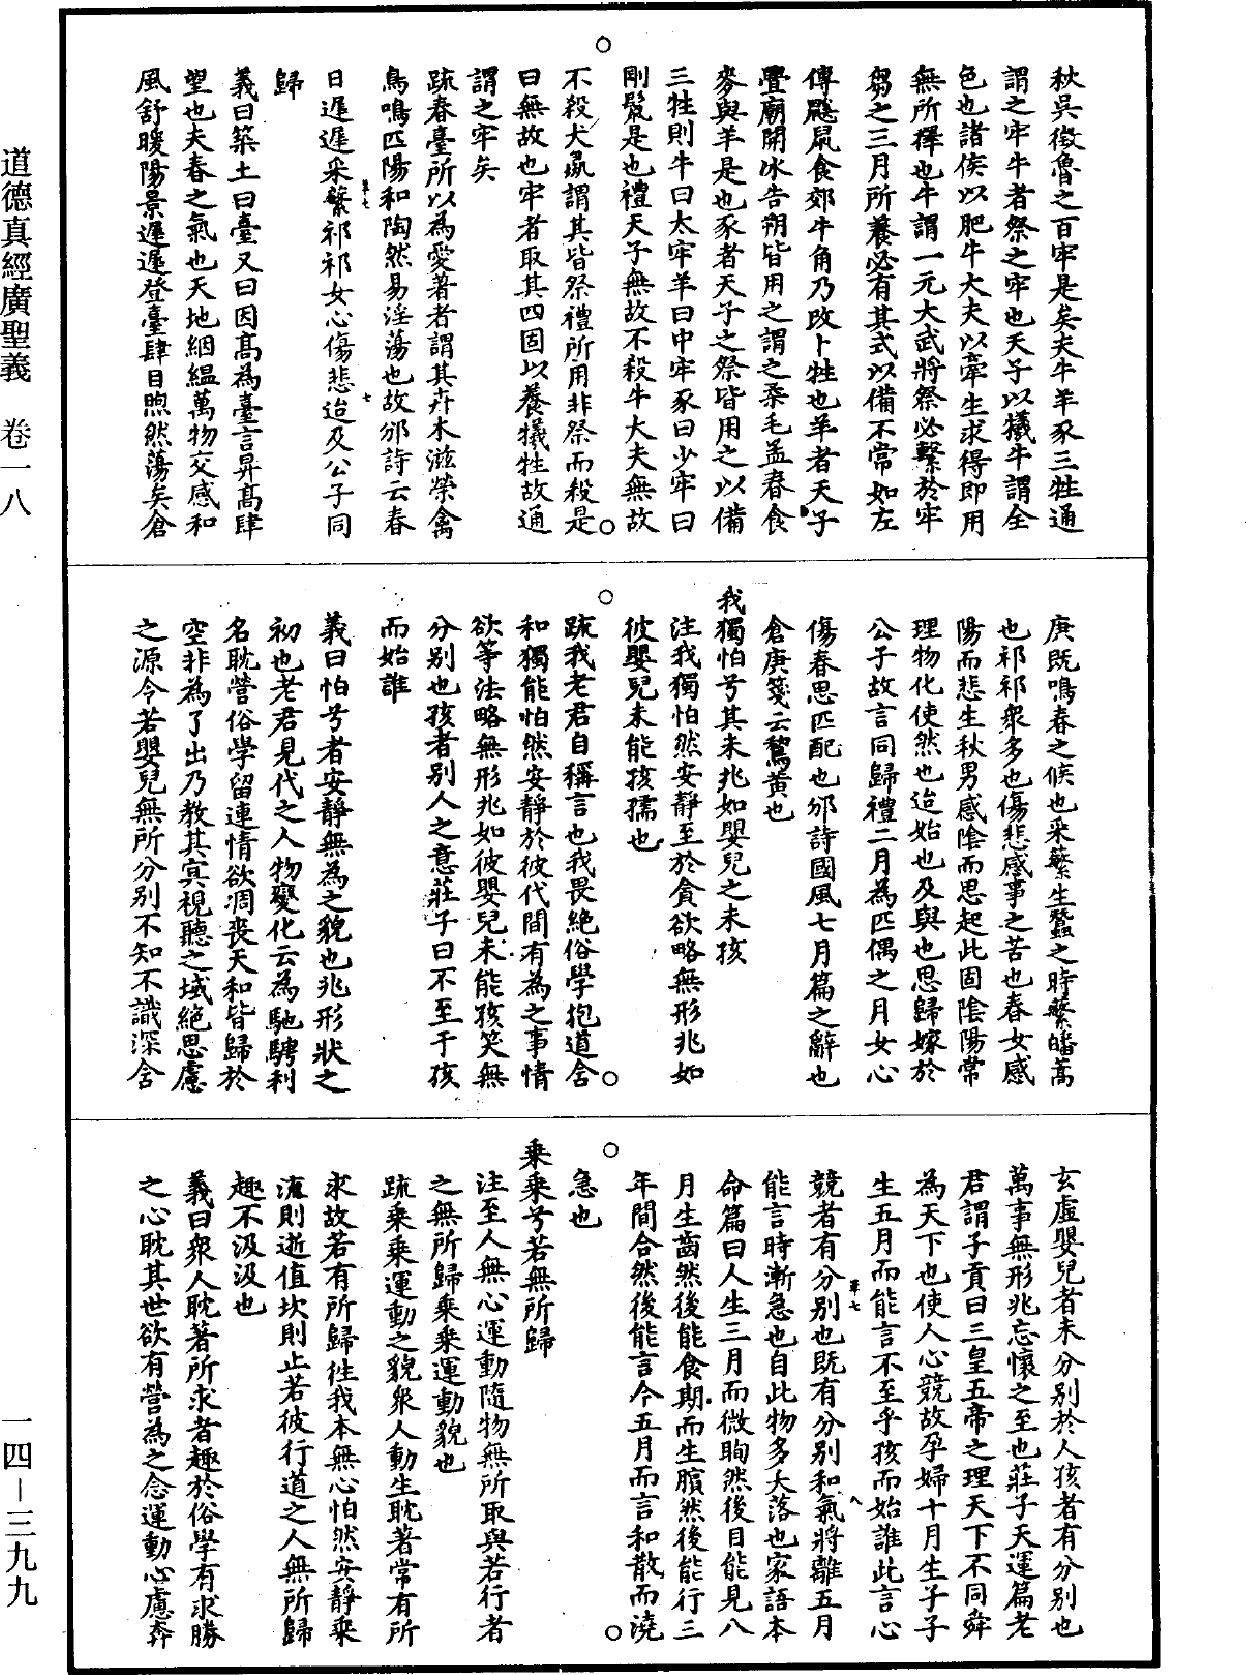 秋吳徵魯之百牢是矣夫牛羊豕三牲通
謂之牢牛者祭之牢也天子以犧牛謂全
色也諸侯以肥牛大夫以牽生求得即用
無所擇也牛謂一元大武將祭必繫於牢
芻之三月所養必有其式以備不常如左
傳鼷鼠食郊牛角乃改卜牲也羊者天子
舋廟開冰告朔皆用之謂之柔毛孟春食
麥與羊是也豕者天子之祭皆用之以備
三牲則牛曰太牢羊曰中牢豕曰少牢曰
剛鬣是也禮天子無故不殺牛大夫無故
不殺犬彘謂其皆祭禮所用非祭而殺是
曰無故也牢者取其四固以養犧牲故通
謂之牢矣
疏春臺所以為愛著者謂其卉木滋榮禽
鳥鳴匹陽和陶然易淫蕩也故邠詩云春
日遲遲采蘩祁祁女心傷悲迨及公子同
歸
義曰築土曰臺又曰因高為臺言昇高肆
望也夫春之氣也天地絪縕萬物交感和
風舒暖陽景遲遲登臺肆目煦然蕩矣倉
庚既鳴春之候也采蘩生蠶之時蘩皤蒿
也祁祁衆多也傷悲感事之苦也春女感
陽而悲生秋男感陰而思起此固陰陽常
理物化使然也迨始也及與也思歸嫁於
公子故言同歸禮二月為匹偶之月女心
傷春思匹配也邠詩國風七月篇之辭也
倉庚箋云鶖黃也
我獨怕兮其未兆如嬰兒之未孩
注我獨怕然安靜至於貪欲略無形兆如
彼嬰兒未能孩孺也
疏我老君自稱言也我畏絶俗學抱道舍
和獨能怕然安靜於彼代間有為之事情
欲等法略無形兆如彼嬰兒未能孩笑無
分別也孩者別人之意莊子曰不至于孩
而始誰
義曰怕兮者安靜無為之貌也兆形狀之
初也老君見代之人物變化云為馳騁利
名耽營俗學留連情欲凋喪天和皆歸於
空非為了出乃教其㝠視聽之域絕思慮
之源令若嬰兒無所分別不知不識深含
玄虛嬰兒者未分別於人孩者有分別也
萬事無形兆忘懷之至也莊子天運篇老
君謂子貢曰三皇五帝之理天下不同舜
為天下也使人心競故孕婦十月生子子
生五月而能言不至乎孩而始誰此言心
競者有分別也既有分別和氣將離五月
能言時漸急也自此物多夭落也家語本
命篇曰人生三月而微眴然後目能見八
月生齒然後能食期而生臏然後能行三
年間合然後能言今五月而言和散而澆
急也
乘乘兮若無所歸
注至人無心運動隨物無所取與若行者
之無所歸乘乘運動貌也
疏乘乘運動之貌衆人動生耽著常有所
求故若有所歸往我本無心怕然安靜乘
流則逝值坎則止若彼行道之人無所歸
趣不汲汲也
義曰衆人耽著所求者趣於俗學有求勝
之心耽其世欲有營為之念運動心慮奔
道德真經廣聖義 卷一八
一四－三九九